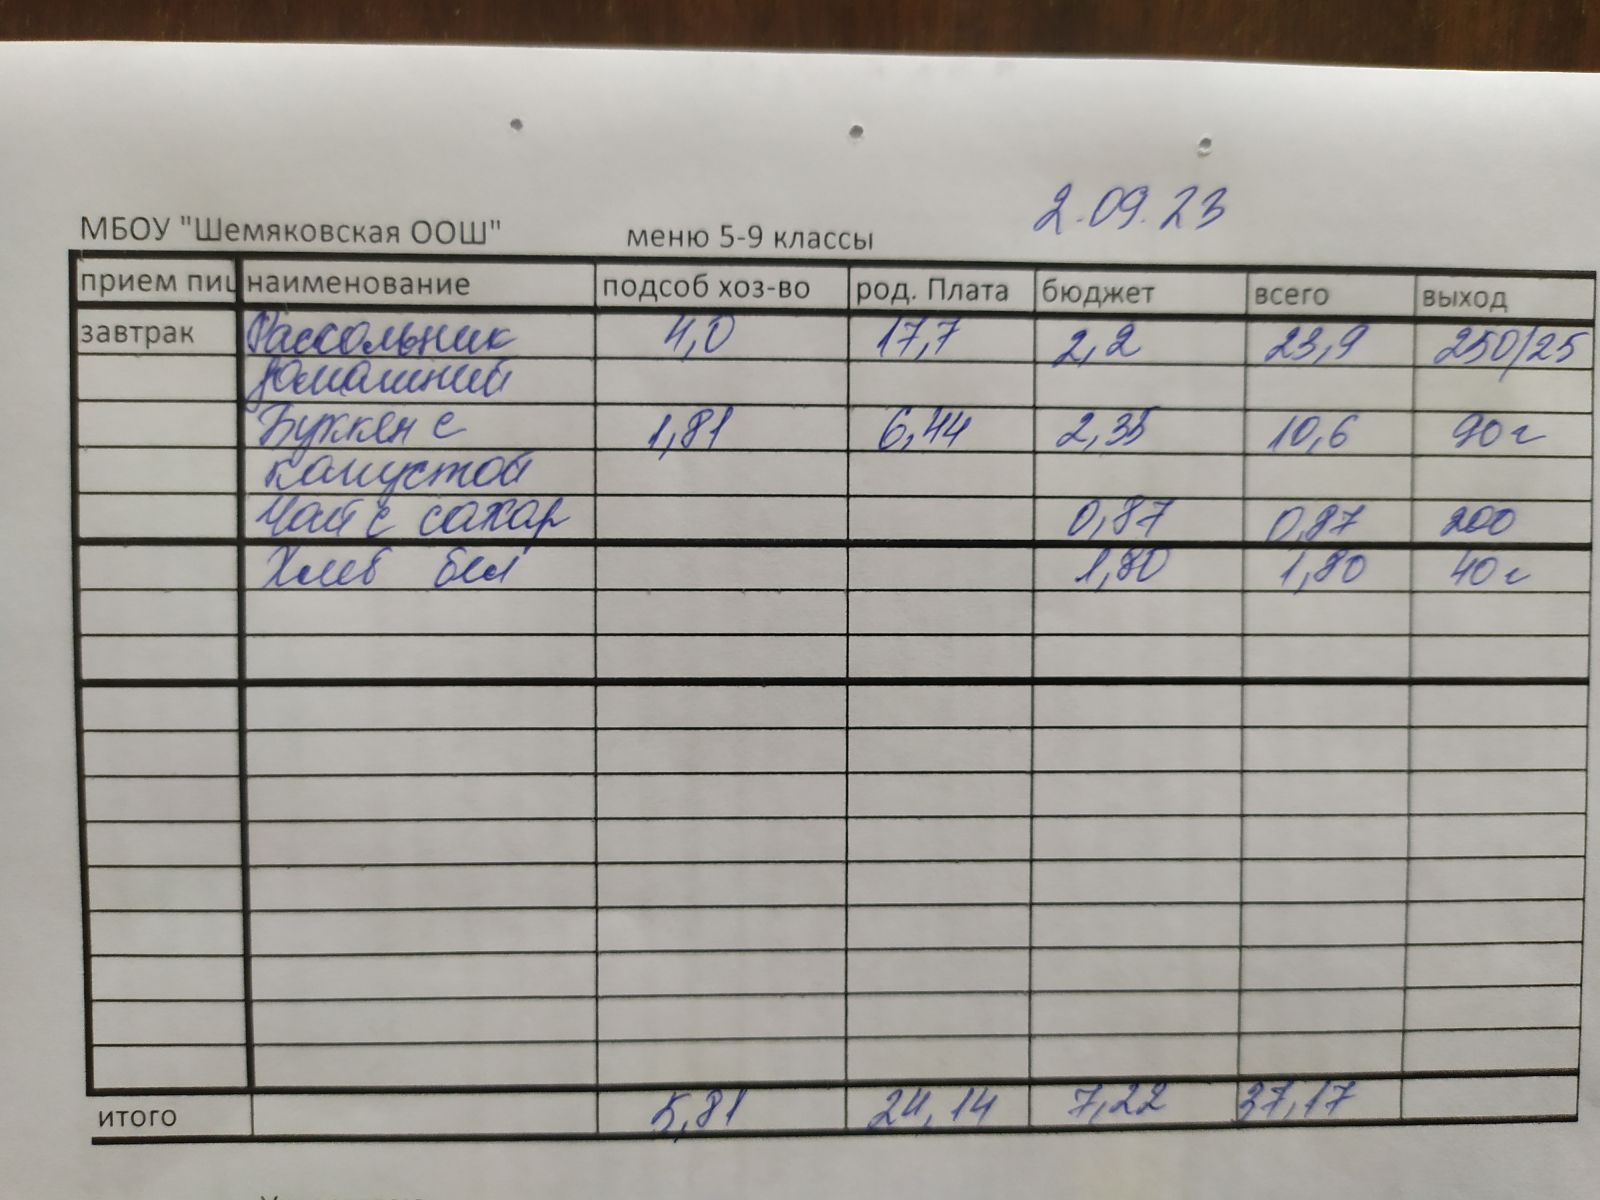 2.09.23
МБОУ "Шемяковская ООШ" меню 5-9 классы
прием пищ наименование подсоб хоз-во род. Плата бюджет всего выход
завтрак Рассольник 4,0 17,7 2,2 23,9 250/25
домашний
Буккен с 1,81 6,44 2,35 10,6 90 г
капустой
Чай с сахар 0,87 0,87 200
Хлеб бел 1,80 1,80 40 г
итого 5,81 24,14 7,22 37,17